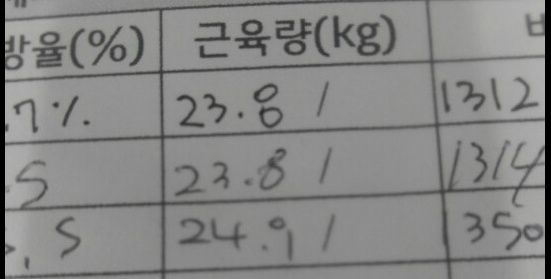 방율(%) 근육량(kg)
.7%. 23.8 / 1312
.5 23.8 / 1314
.5 24.9 / 1350